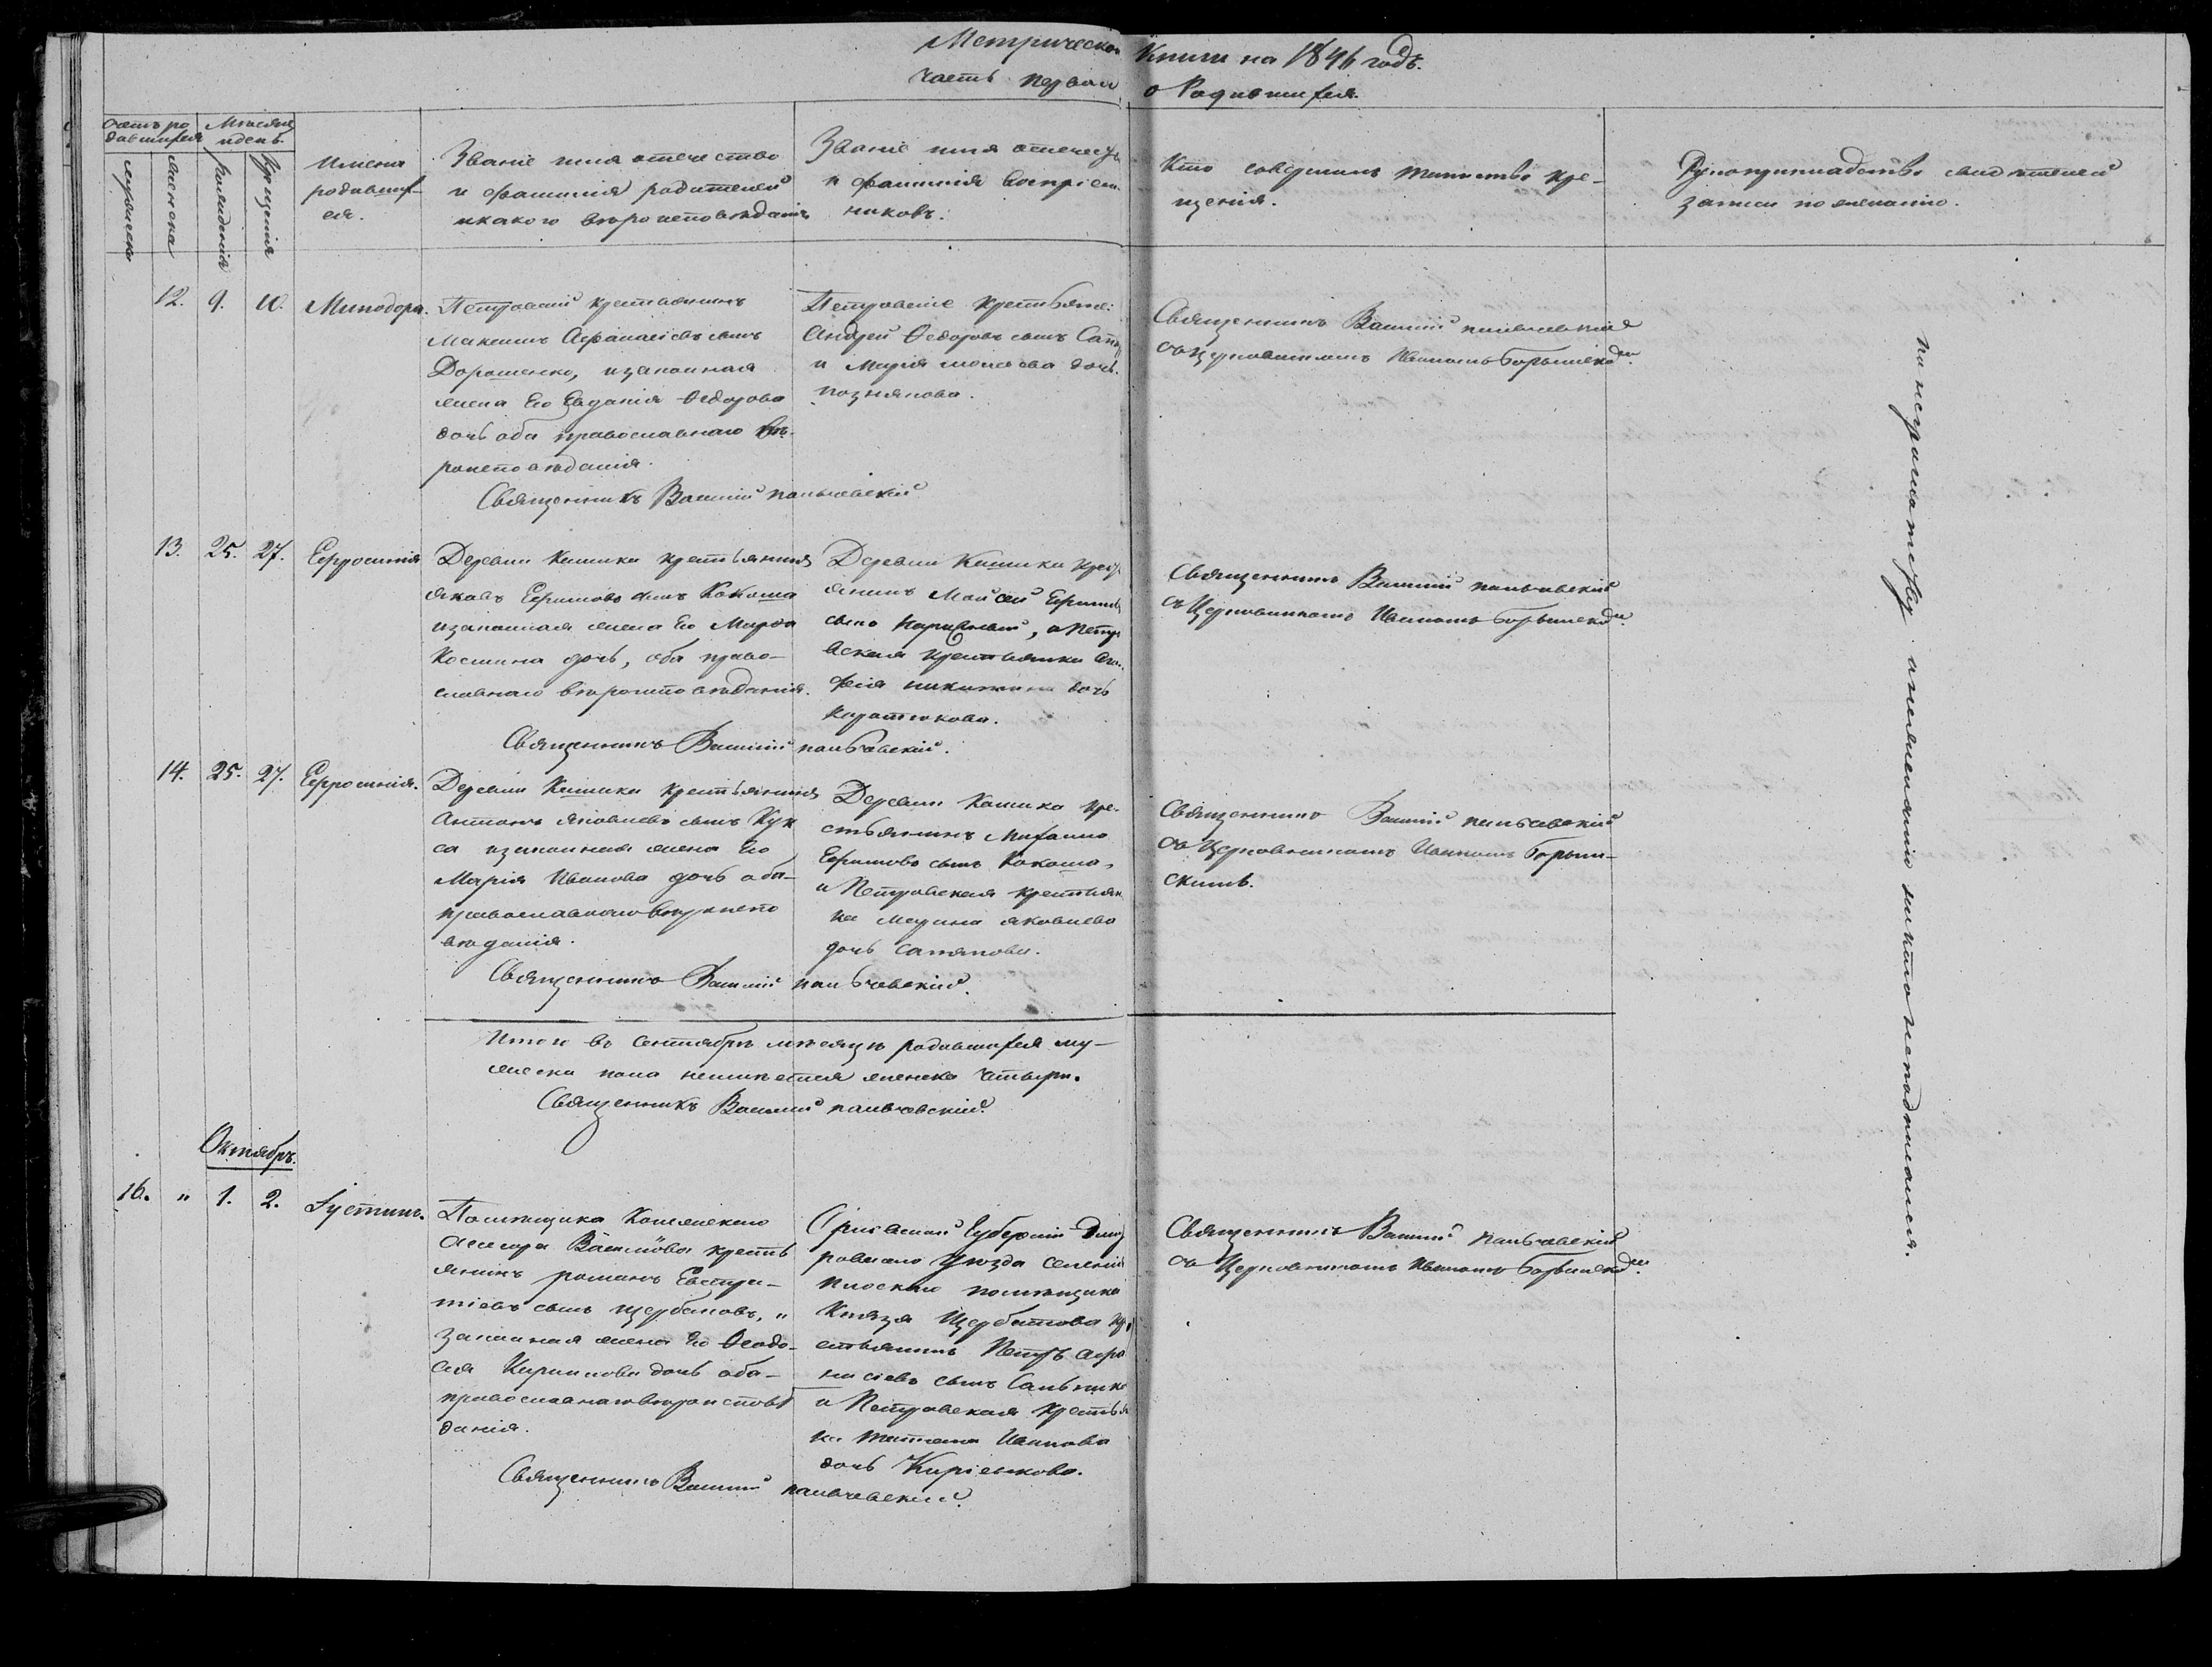 Метрической Книги на 1846 годъ.
Часть первая о Родившихся.
Счетъ ро
дившихся
Мѣсяцъ
и день.
мужеска
женска
рожденія
крещенія
Имена
родивших-
ся.
Званіе имя отечество
и фамилія родителей
и какого вѣроисповѣданія
Званіе имя отечество
и фамилія воспріем-
никовъ.
Кто совершилъ таинство кре-
щенія.
Рукоприкладство свидѣтелей
записи по желанію.
12. 9. 10. Минодора.
Петровскій крестьянинъ
Максимъ Афанасіевъ сынъ
Дорошенко, и законная
жена его Евдокія Ѳедорова
дочь оба православнаго вѣ-
роисповѣданія.
Священникъ Василій Пальчевскій
Петровскіе крестьяне:
Андрей Ѳедоровъ сынъ
и Марія Моисеева дочь
Познякова.
Священникъ Василій Пальчевскій
съ Церковникомъ Иваномъ
13. 25. 27. Ефросинія
Деревни Кашики крестьянинъ
Яковъ Ефимовъ сынъ Кокоша
и законная жена его Марѳа
Космина дочь, оба право-
славнаго вѣроисповѣданія.
Священникъ Василій Пальчевскій.
Деревни Кашики крест
янинъ Мойсей
сынъ, и Петро
вская крестьянка Ага
фія дочь
Священникъ Василій Пальчевскій
съ Церковникомъ Иваномъ
14. 25. 27. Ефросинія.
Деревни Кашики крестьянинъ
Антонъ Яковлевъ сынъ
и законная жена его
Марія Иванова дочь оба
православнаго вѣроиспо
вѣданія.
Священникъ Василій Пальчевскій.
Деревни Кашики кре-
стьянинъ Михаилъ
Ефимовъ сынъ Кокоша,
и Петровская крестьян
ка Марина Яковлева
дочь
Священникъ Василій Пальчевскій
съ Церковникомъ Иваномъ
Итого въ Сентябрѣ мѣсяцѣ родившихся му-
жеска пола неимѣется женска четыре.
Священникъ Василій Пальчевскій.
Октябрь.
16. " 1. 2. Іустинъ.
Помѣщика Колежскаго
Асесора крестъ
янинъ Романъ Евстра-
тіевъ сынъ Щербаковъ, и
законная жена его Ѳеодо-
сія Кирилова дочь оба
православнаго вѣроисповѣ
данія.
Священникъ Василій Пальчевскій.
Губерніи
уѣзда селенія
Плоскаго помѣщика
Князя Щербатова кр
естьянинъ Петръ Афа
насіевъ сынъ
и Петровская крестьян
ка Татіана Иванова
дочь Киріенкова.
Священникъ Василій Пальчевскій
съ Церковникомъ Иваномъ
По неграмотству и нежеланію никто неподписался.